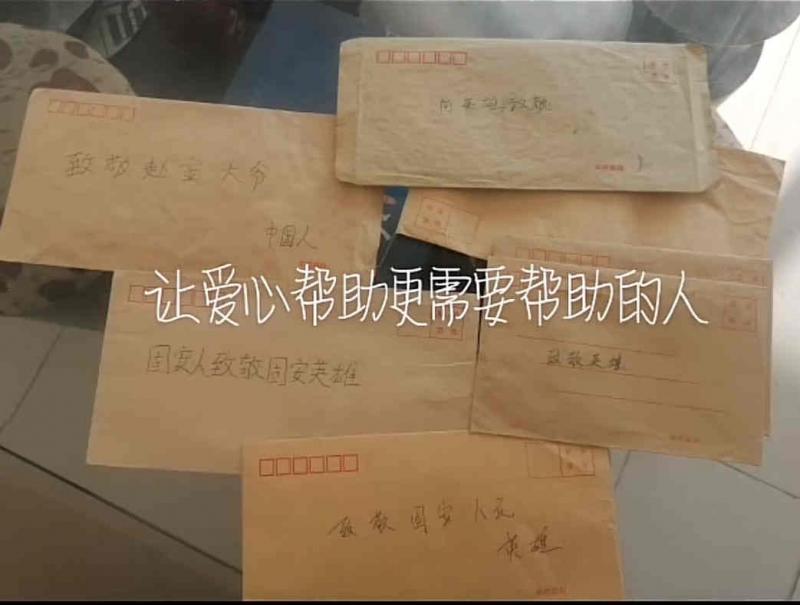 向英雄致敬
致敬赵宝大爷
中国人
让爱心帮助更需要帮助的人
致敬英雄
固安人致敬固安英雄
致敬固安人民
英雄